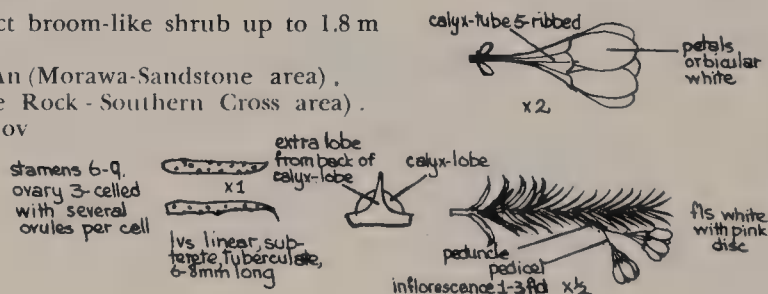 ct broom-like shrub up to 1.8 m
An (Morawa-Sandstone area),
e Rock - Southern Cross area).
ov
calyx-tube 5-ribbed
petals
orbicular
white
x2
stamens 6-9.
ovary 3-celled
with several
ovules per cell
x1
lvs linear, sub-
terete, tuberculate,
6-8mm long
extra lobe
from back of
calyx-lobe
calyx-lobe
peduncle
pedicel
inflorescence 1-3 fld x½
fls white
with pink
disc